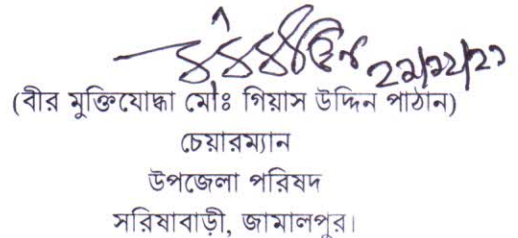 ২১/১২/২১
(বীর মুক্তিযোদ্ধা মোঃ গিয়াস উদ্দিন পাঠান)
চেয়ারম্যান
উপজেলা পরিষদ
সরিষাবাড়ী, জামালপুর।